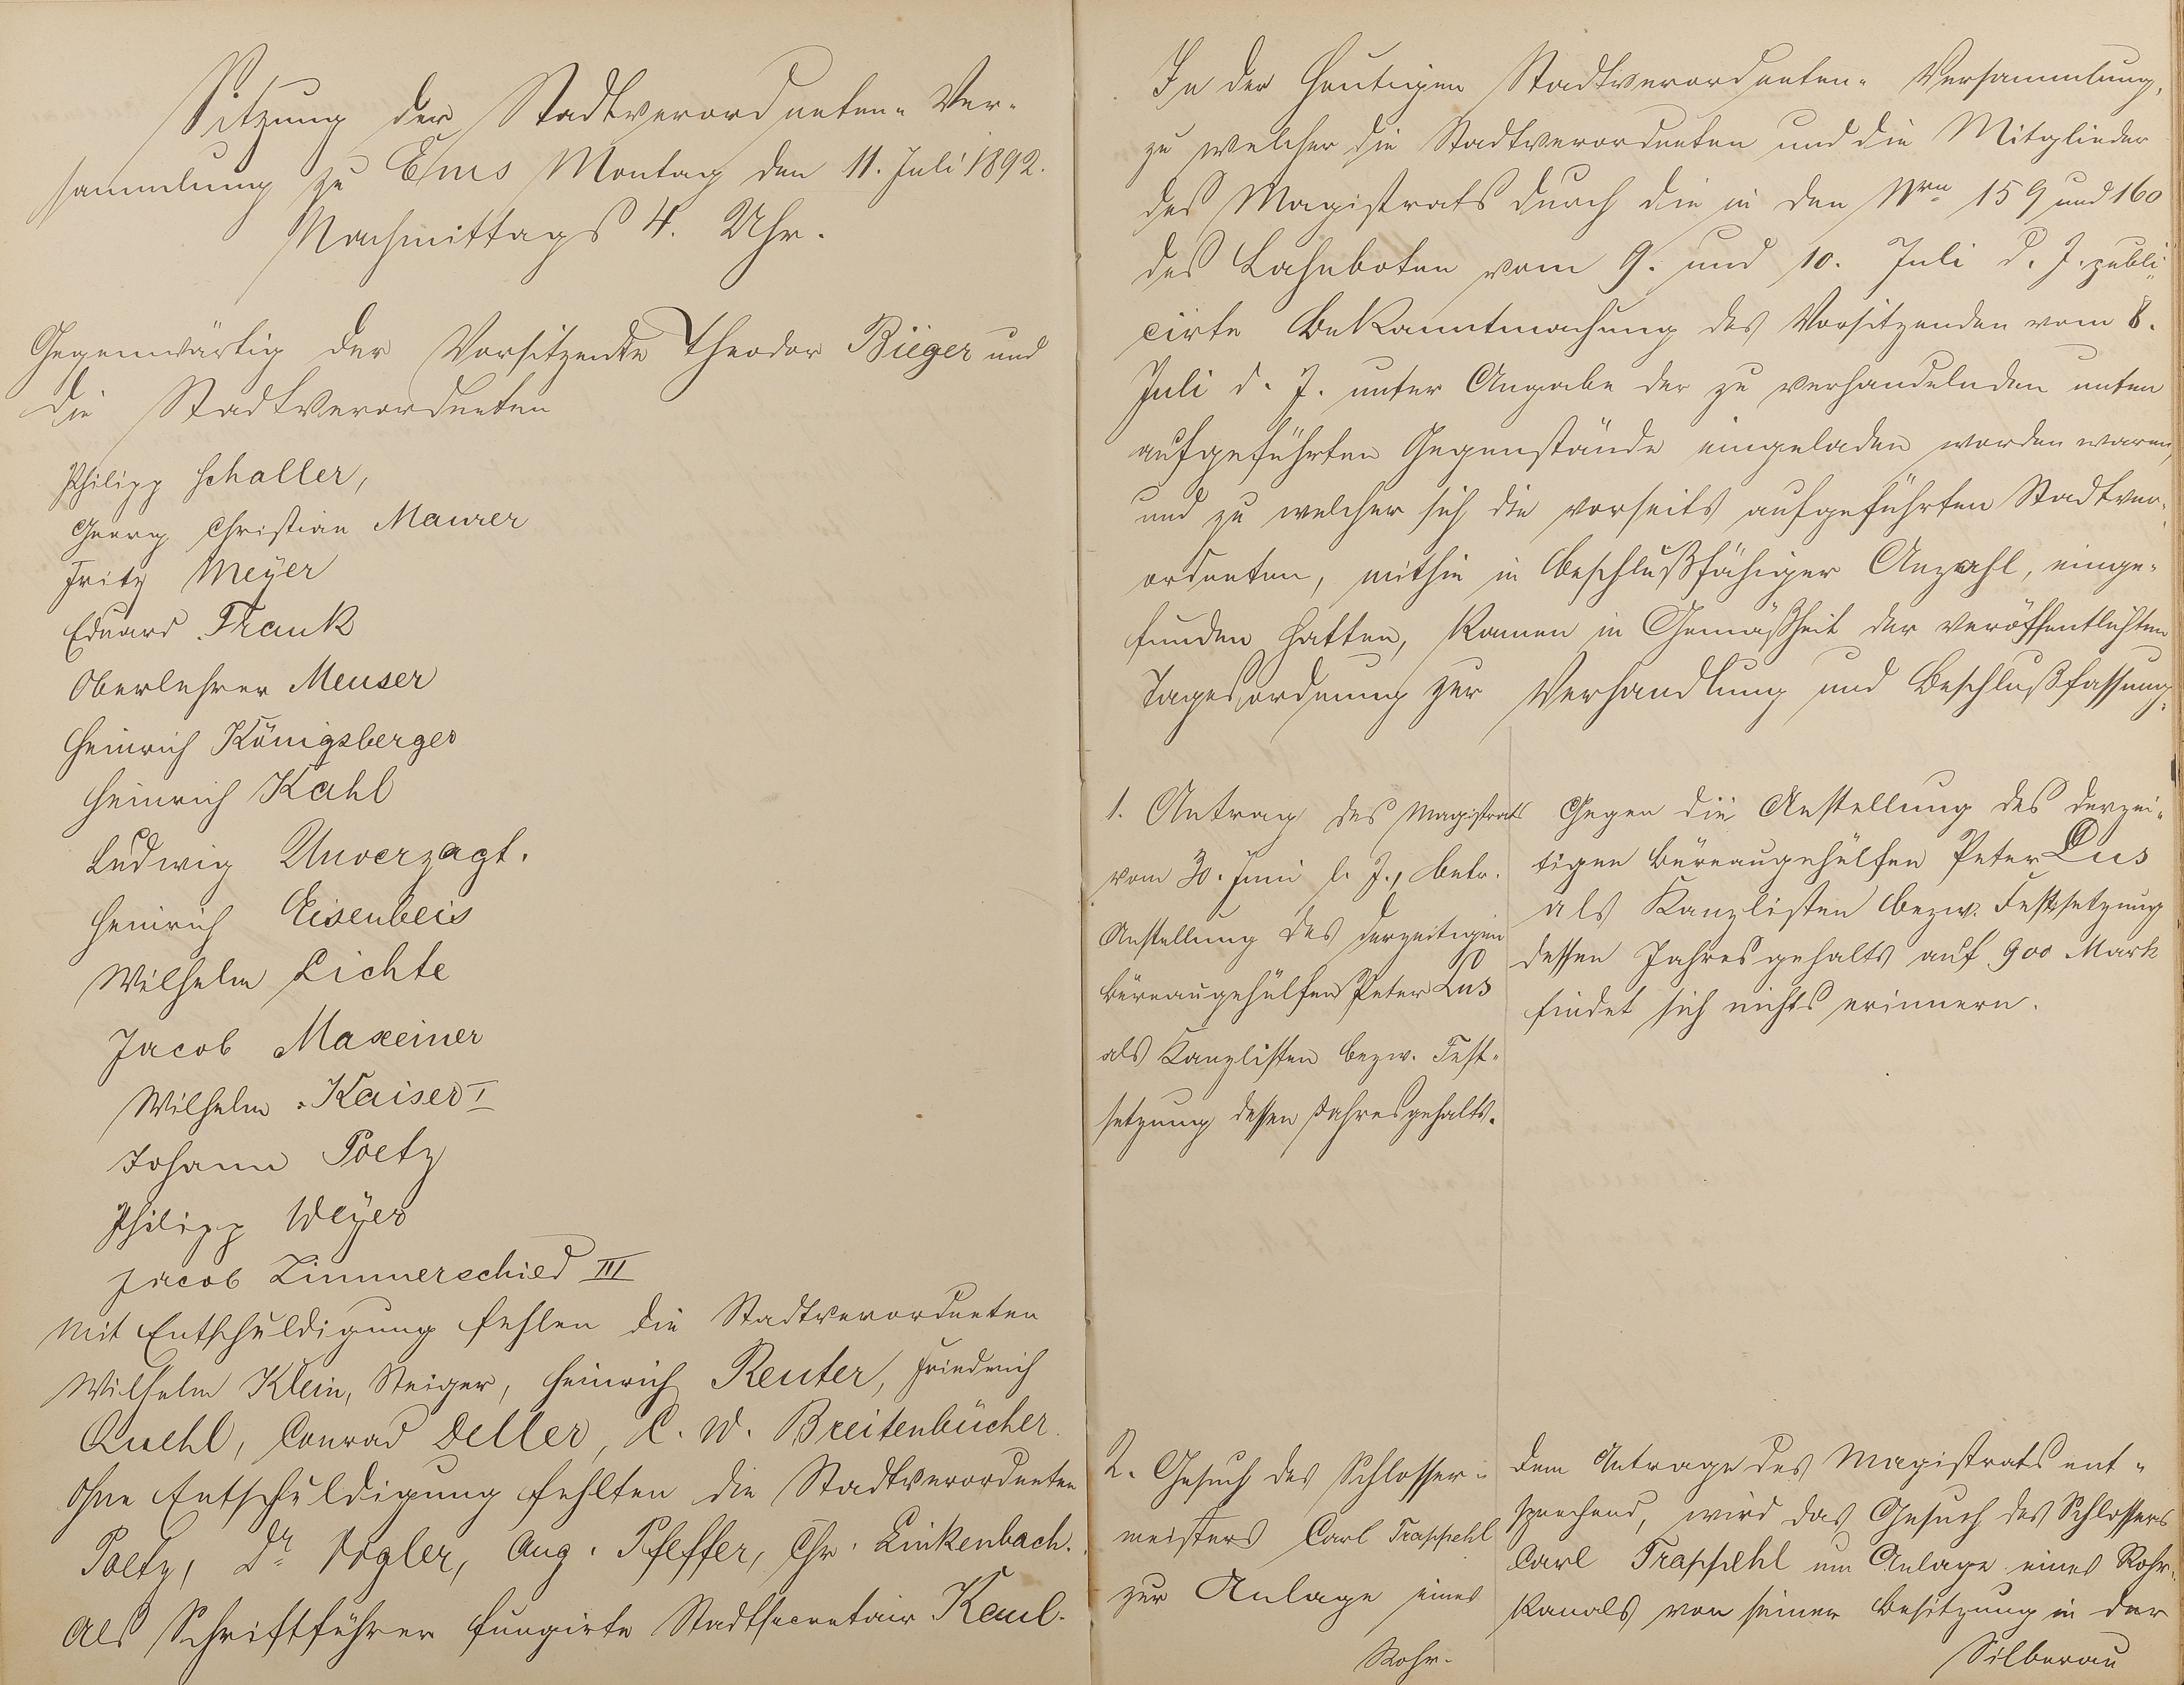 Sitzung der Stadtverordneten-Ver-
sammlung zu Ems Montag den 11. Juli 1892.
Nachmittags 4. Uhr.
Gegenwärtig der Vorsitzende Theodor Bieger und
die Stadtverordneten
Philipp Schaller,
Georg Christian Maurer
Fritz Meyer
Eduard Frank
Oberlehrer Meuser
Heinrich Königsberger
Heinrich Kahl
Ludwig Unverzagt.
Heinrich Eisenbeis
Wilhelm Lichte
Jacob Maxeiner
Wilhelm Kaiser I
Johann Poetz
Philipp Weyer
Jacob Zimmerschied III
Mit Entschuldigung fehlen die Stadtverordneten
Wilhelm Klein, Steiger, Heinrich Reuter, Friedrich
Quehl, Conrad Deller, C. W. Breitenbücher.
Ohne Entschuldigung fehlten die Stadtverordneten
Poetz, Dr. Vogler, Aug. Pfeffer, Chr. Linkenbach.
Als Schriftführer fungirte Stadtsecretair Kaul.
In der heutigen Stadtverordneten-Versammlung,
zu welcher die Stadtverordneten und die Mitglieder
des Magistrats durch die in den Nrn 159 und 160
des Lahnboten vom 9. und 10. Juli d. J. publi-
cirte Bekanntmachung des Vorsitzenden vom 8.
Juli d. J. unter Angabe der zu verhandelnden unten
aufgeführten Gegenstände eingeladen worden waren,
und zu welcher sich die vorseits aufgeführten Stadtver-
ordneten, mithin in beschlußfähiger Anzahl, einge-
funden hatten, kamen in Gemäßheit der veröffentlichten
Tagesordnung zur Verhandlung und Beschlußfassung:
1. Antrag des Magistrats
vom 30. Juni l. J., betr.
Anstellung des derzeitigen
Büreaugehülfen Peter Lus
als Kanzlisten bezw. Fest-
setzung dessen Jahresgehalts.
Gegen die Anstellung des derzei-
tigen Büreaugehülfen Peter Lus
als Kanzlisten bezw. Festsetzung
dessen Jahresgehalts auf 900 Mark
findet sich nichts erinnern.
2. Gesuch des Schlosser-
meisters Carl Trappehl
zur Anlage eines
Rohr-
Dem Antrage des Magistrats ent-
sprechend, wird das Gesuch des Schlossers
Carl Trappehl um Anlage eines Rohr-
kanals von seiner Besitzung in der
Silberau